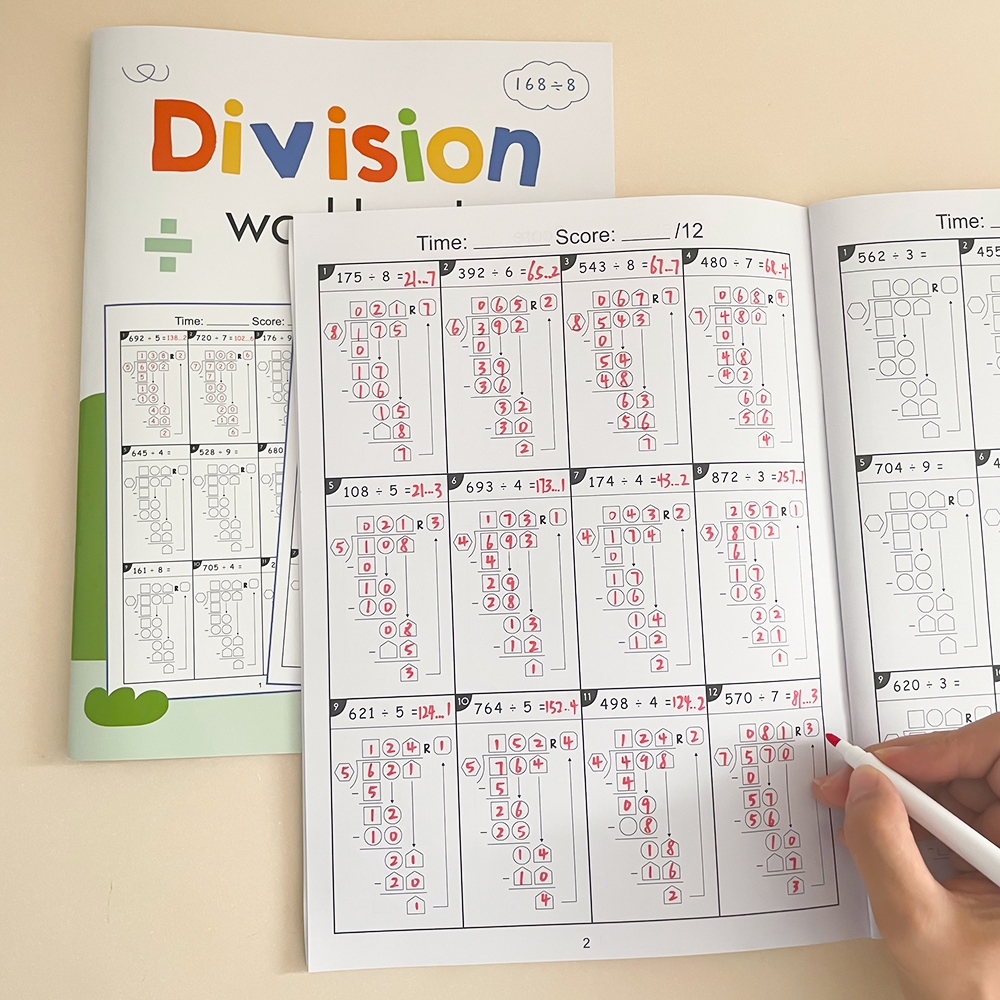 168÷8
Division
Time: Score:
1 692 ÷ 5 =138...2
2 720 ÷ 7 =102...6
3 176 ÷ 9
1 3 8 R 2
5 6 9 2
1 0 2 R 6
7 7 2 0
645 ÷ 4 =
528 ÷ 9 =
680
161 ÷ 8 =
705 ÷ 4 =
1
Time: Score: /12
1 175 ÷ 8 =21...7
2 392 ÷ 6 =65..2
3 543 ÷ 8 =67..7
4 480 ÷ 7 =68..4
0 2 1 R 7
8 1 7 5
- 0
1 7
- 1 6
1 5
- 8
7
0 6 5 R 2
6 3 9 2
- 0
3 9
- 3 6
3 2
- 3 0
2
0 6 7 R 7
8 5 4 3
- 0
5 4
- 4 8
6 3
- 5 6
7
0 6 8 R 4
7 4 8 0
- 0
4 8
- 4 2
6 0
- 5 6
4
5 108 ÷ 5 =21...3
6 693 ÷ 4 =173...1
7 174 ÷ 4 =43...2
8 872 ÷ 3 =257..1
0 2 1 R 3
5 1 0 8
- 0
1 0
- 1 0
0 8
- 5
3
1 7 3 R 1
4 6 9 3
- 4
2 9
- 2 8
1 3
- 1 2
1
0 4 3 R 2
4 1 7 4
- 0
1 7
- 1 6
1 4
- 1 2
2
2 5 7 R 1
3 8 7 2
- 6
1 7
- 1 5
2 2
- 2 1
1
9 621 ÷ 5 =124...1
10 764 ÷ 5 =152..4
11 498 ÷ 4 =124..2
12 570 ÷ 7 =81...3
1 2 4 R 1
5 6 2 1
- 5
1 2
- 1 0
2 1
- 2 0
1
1 5 2 R 4
5 7 6 4
- 5
2 6
- 2 5
1 4
- 1 0
4
1 2 4 R 2
4 4 9 8
- 4
0 9
- 8
1 8
- 1 6
2
0 8 1 R 3
7 5 7 0
- 0
5 7
- 5 6
1 0
- 7
3
2
Time:
1 562 ÷ 3 =
2 455
R
5 704 ÷ 9 =
R
9 620 ÷ 3 =
R